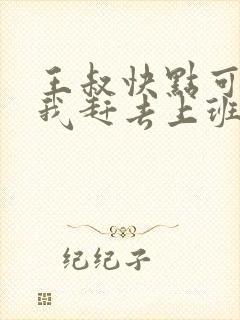 王叔快點可
我赶去上班
纪纪子